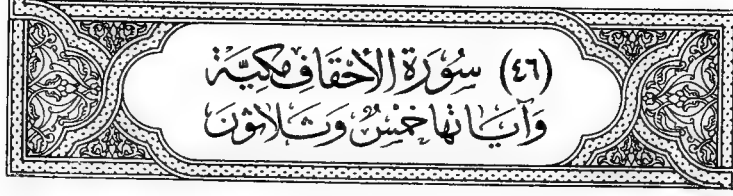 (٤٦) سُورَة الأحقاف مكيّة
وَآيَاتها خمسٌ وَثلاثونَ